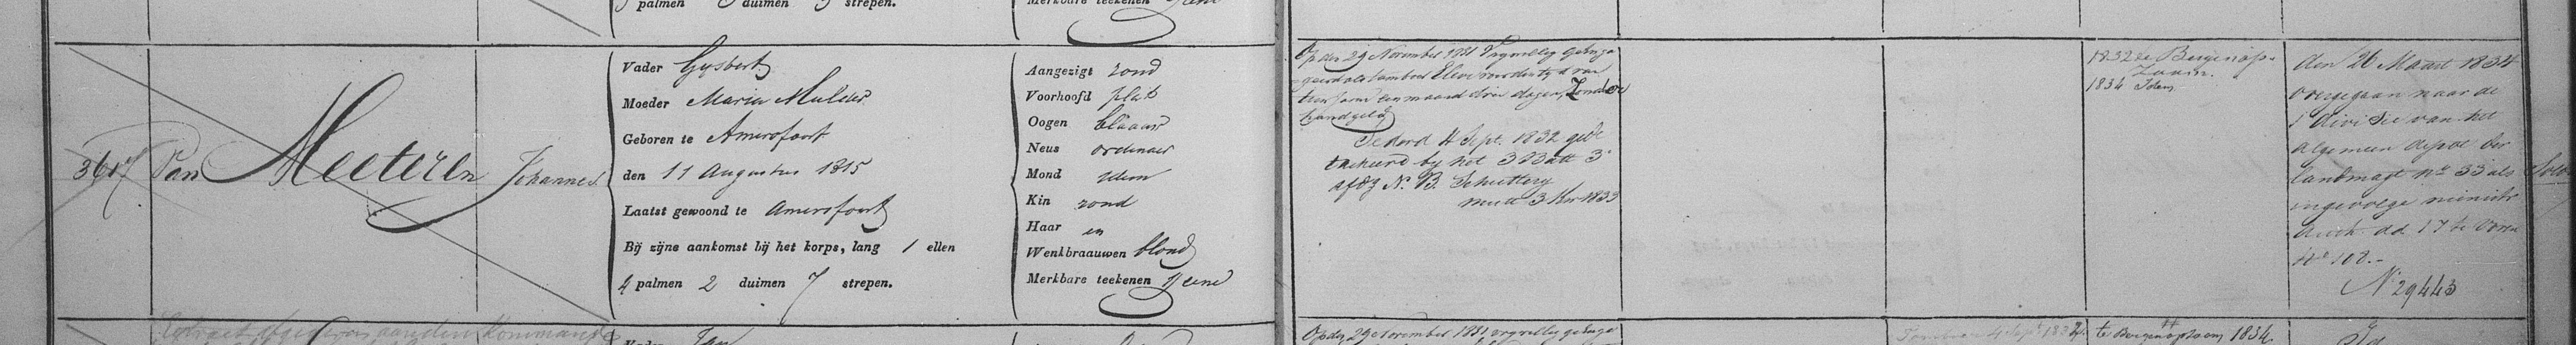 palmen duimen strepen.
Merkbare teekenen Geene
3617
Van Meeteren Johannes.
Vader Gysbert
Moeder Maria Mulder
Geboren te Amersfoort
den 11 Augustus 1815
Laatst gewoond te Amersfoort
Bij zijne aankomst bij het korps, lang 1 ellen
4 palmen 2 duimen 7 strepen.
Aangezigt rond
Voorhoofd plat
Oogen blaauw
Neus ordinair
Mond idem
Kin rond
Haar en
Wenkbraauwen blond
Merkbare teekenen Geene
Op den 29 November 1831 Vrywillig geënga-
geerd als tamboer Eleve voor den tyd van
tien jaren een maand drie dagen, Zonder
handgeld
Sedert 4 Sept. 1832 gede
tacheerd by het 3 Batt 3e
afdg N. B. Schuttery
1833
1832 te Bergen op-
Zoom.
1834 Idem
den 26 Maart 1834
overgegaan naar de
1e divisie van het
algemeen depot der
landmagt no 33 als
ingevolge ministr
dd 17 te voren
No 108.-
N 29443
Extract afgegeven aan den Kommand
Vader Jan
Op den 29 November 1831 vrywillig geënga
te Bergen op Zoom 1834